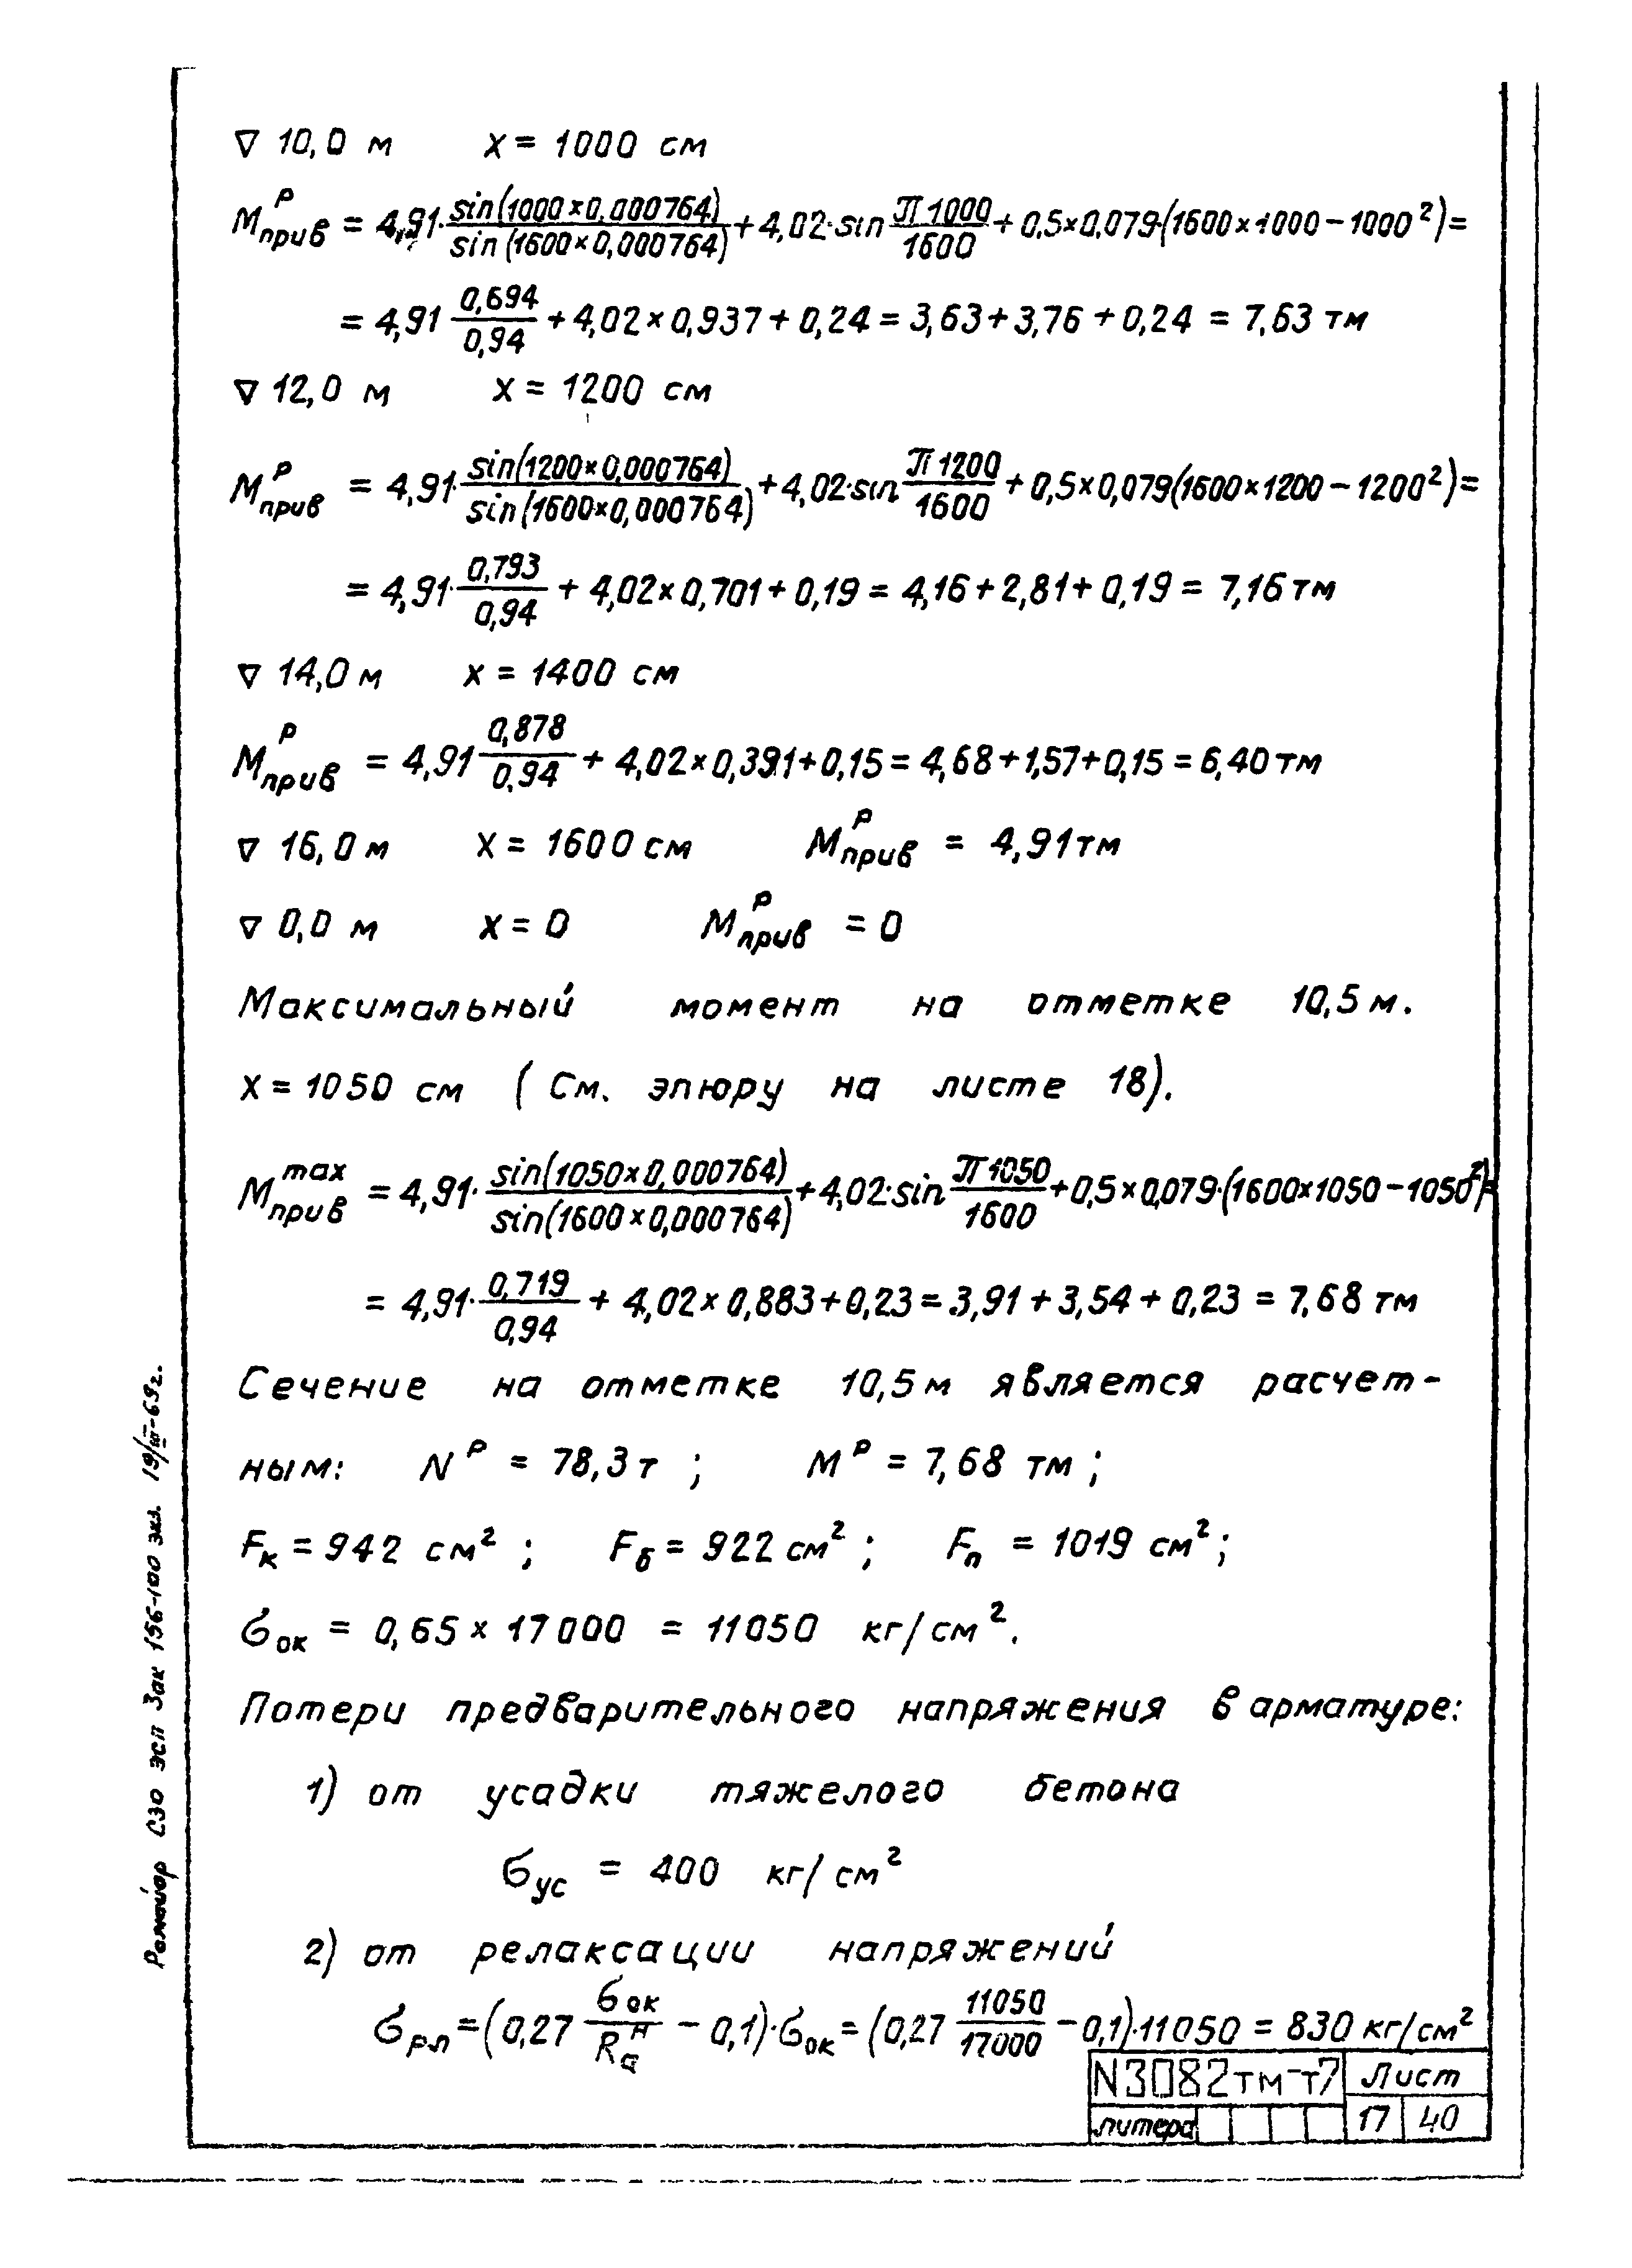 ∇ 10,0 м x = 1000 см
M^р_прив = 4,91·sin(1000×0,000764)/sin(1600×0,000764) + 4,02·sin π1000/1600 + 0,5×0,079·(1600×1000 − 1000²) =
= 4,91 0,694/0,94 + 4,02×0,937 + 0,24 = 3,63 + 3,76 + 0,24 = 7,63 тм
∇ 12,0 м x = 1200 см
M^р_прив = 4,91·sin(1200×0,000764)/sin(1600×0,000764) + 4,02·sin π1200/1600 + 0,5×0,079(1600×1200 − 1200²) =
= 4,91·0,793/0,94 + 4,02×0,701 + 0,19 = 4,16 + 2,81 + 0,19 = 7,16 тм
∇ 14,0 м x = 1400 см
M^р_прив = 4,91 0,878/0,94 + 4,02×0,391 + 0,15 = 4,68 + 1,57 + 0,15 = 6,40 тм
∇ 16,0 м x = 1600 см M^р_прив = 4,91 тм
∇ 0,0 м x = 0 M^р_прив = 0
Максимальный момент на отметке 10,5 м.
x = 1050 см (См. эпюру на листе 18).
M^max_прив = 4,91·sin(1050×0,000764)/sin(1600×0,000764) + 4,02·sin π1050/1600 + 0,5×0,079·(1600×1050 − 1050²) =
= 4,91·0,719/0,94 + 4,02×0,883 + 0,23 = 3,91 + 3,54 + 0,23 = 7,68 тм
Сечение на отметке 10,5 м является расчет-
ным: N^р = 78,3 т ; M^р = 7,68 тм ;
F_к = 942 см² ; F_б = 922 см² ; F_п = 1019 см² ;
σ_ок = 0,65 × 17000 = 11050 кг/см².
Потери предварительного напряжения в арматуре:
1) от усадки тяжелого бетона
σ_ус = 400 кг/см²
2) от релаксации напряжений
σ_рл = (0,27 σ_ок/R_а^н − 0,1)·σ_ок = (0,27 11050/17000 − 0,1)·11050 = 830 кг/см²
N3082тм-т7 Лист
литера 17 40
СЗО ЭСП Зак 156-100 экз. 19/III-69г.